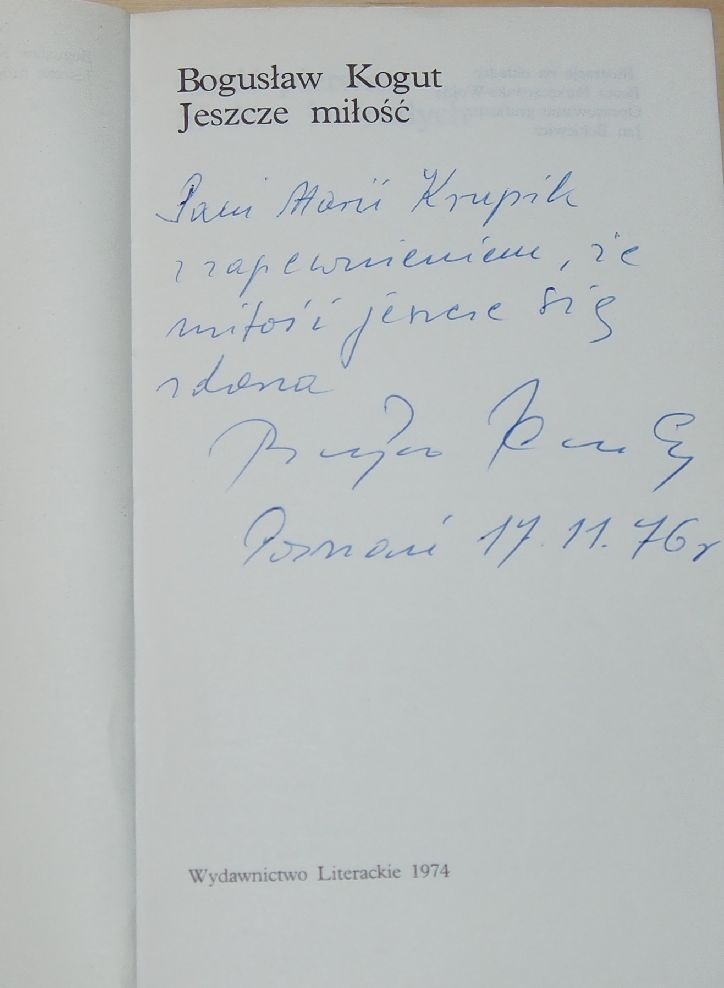 Bogusław Kogut
Jeszcze miłość
Pani Marii Krupik
z zapewnieniem, że
miłość jeszcze się
zdarza
Poznań 17.11.76 r
Wydawnictwo Literackie 1974